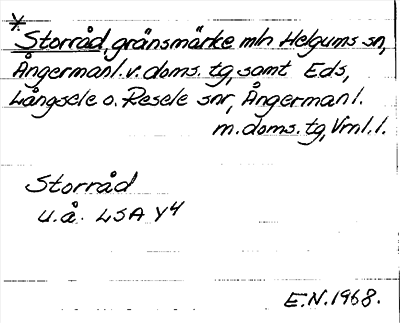 *
Storråd, gränsmärke mln Helgums sn,
Ångermanl. v. doms. tg, samt Eds,
Långsele o. Resele snr, Ångermanl.
m. doms. tg, Vrnl. l.
Storråd
u.å. LSA Y4
E.N. 1968.